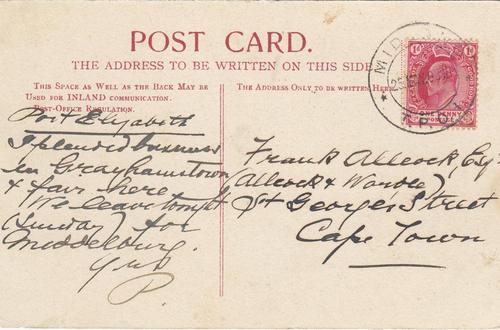 POST CARD.
THE ADDRESS TO BE WRITTEN ON THIS SIDE
THIS SPACE AS WELL AS THE BACK MAY BE
USED FOR INLAND COMMUNICATION.
POST-OFFICE REGULATION.
THE ADDRESS ONLY TO BE WRITTEN HERE
Port Elizabeth
Splendid business
in Grayhamstown
& fair here
We leave tonight
(Sunday) for
Middelburg.
P.
Frank Allcock, Esq
(Allcock & Wardle)
St Georges Street
Cape Town
1d 1d
ONE PENNY